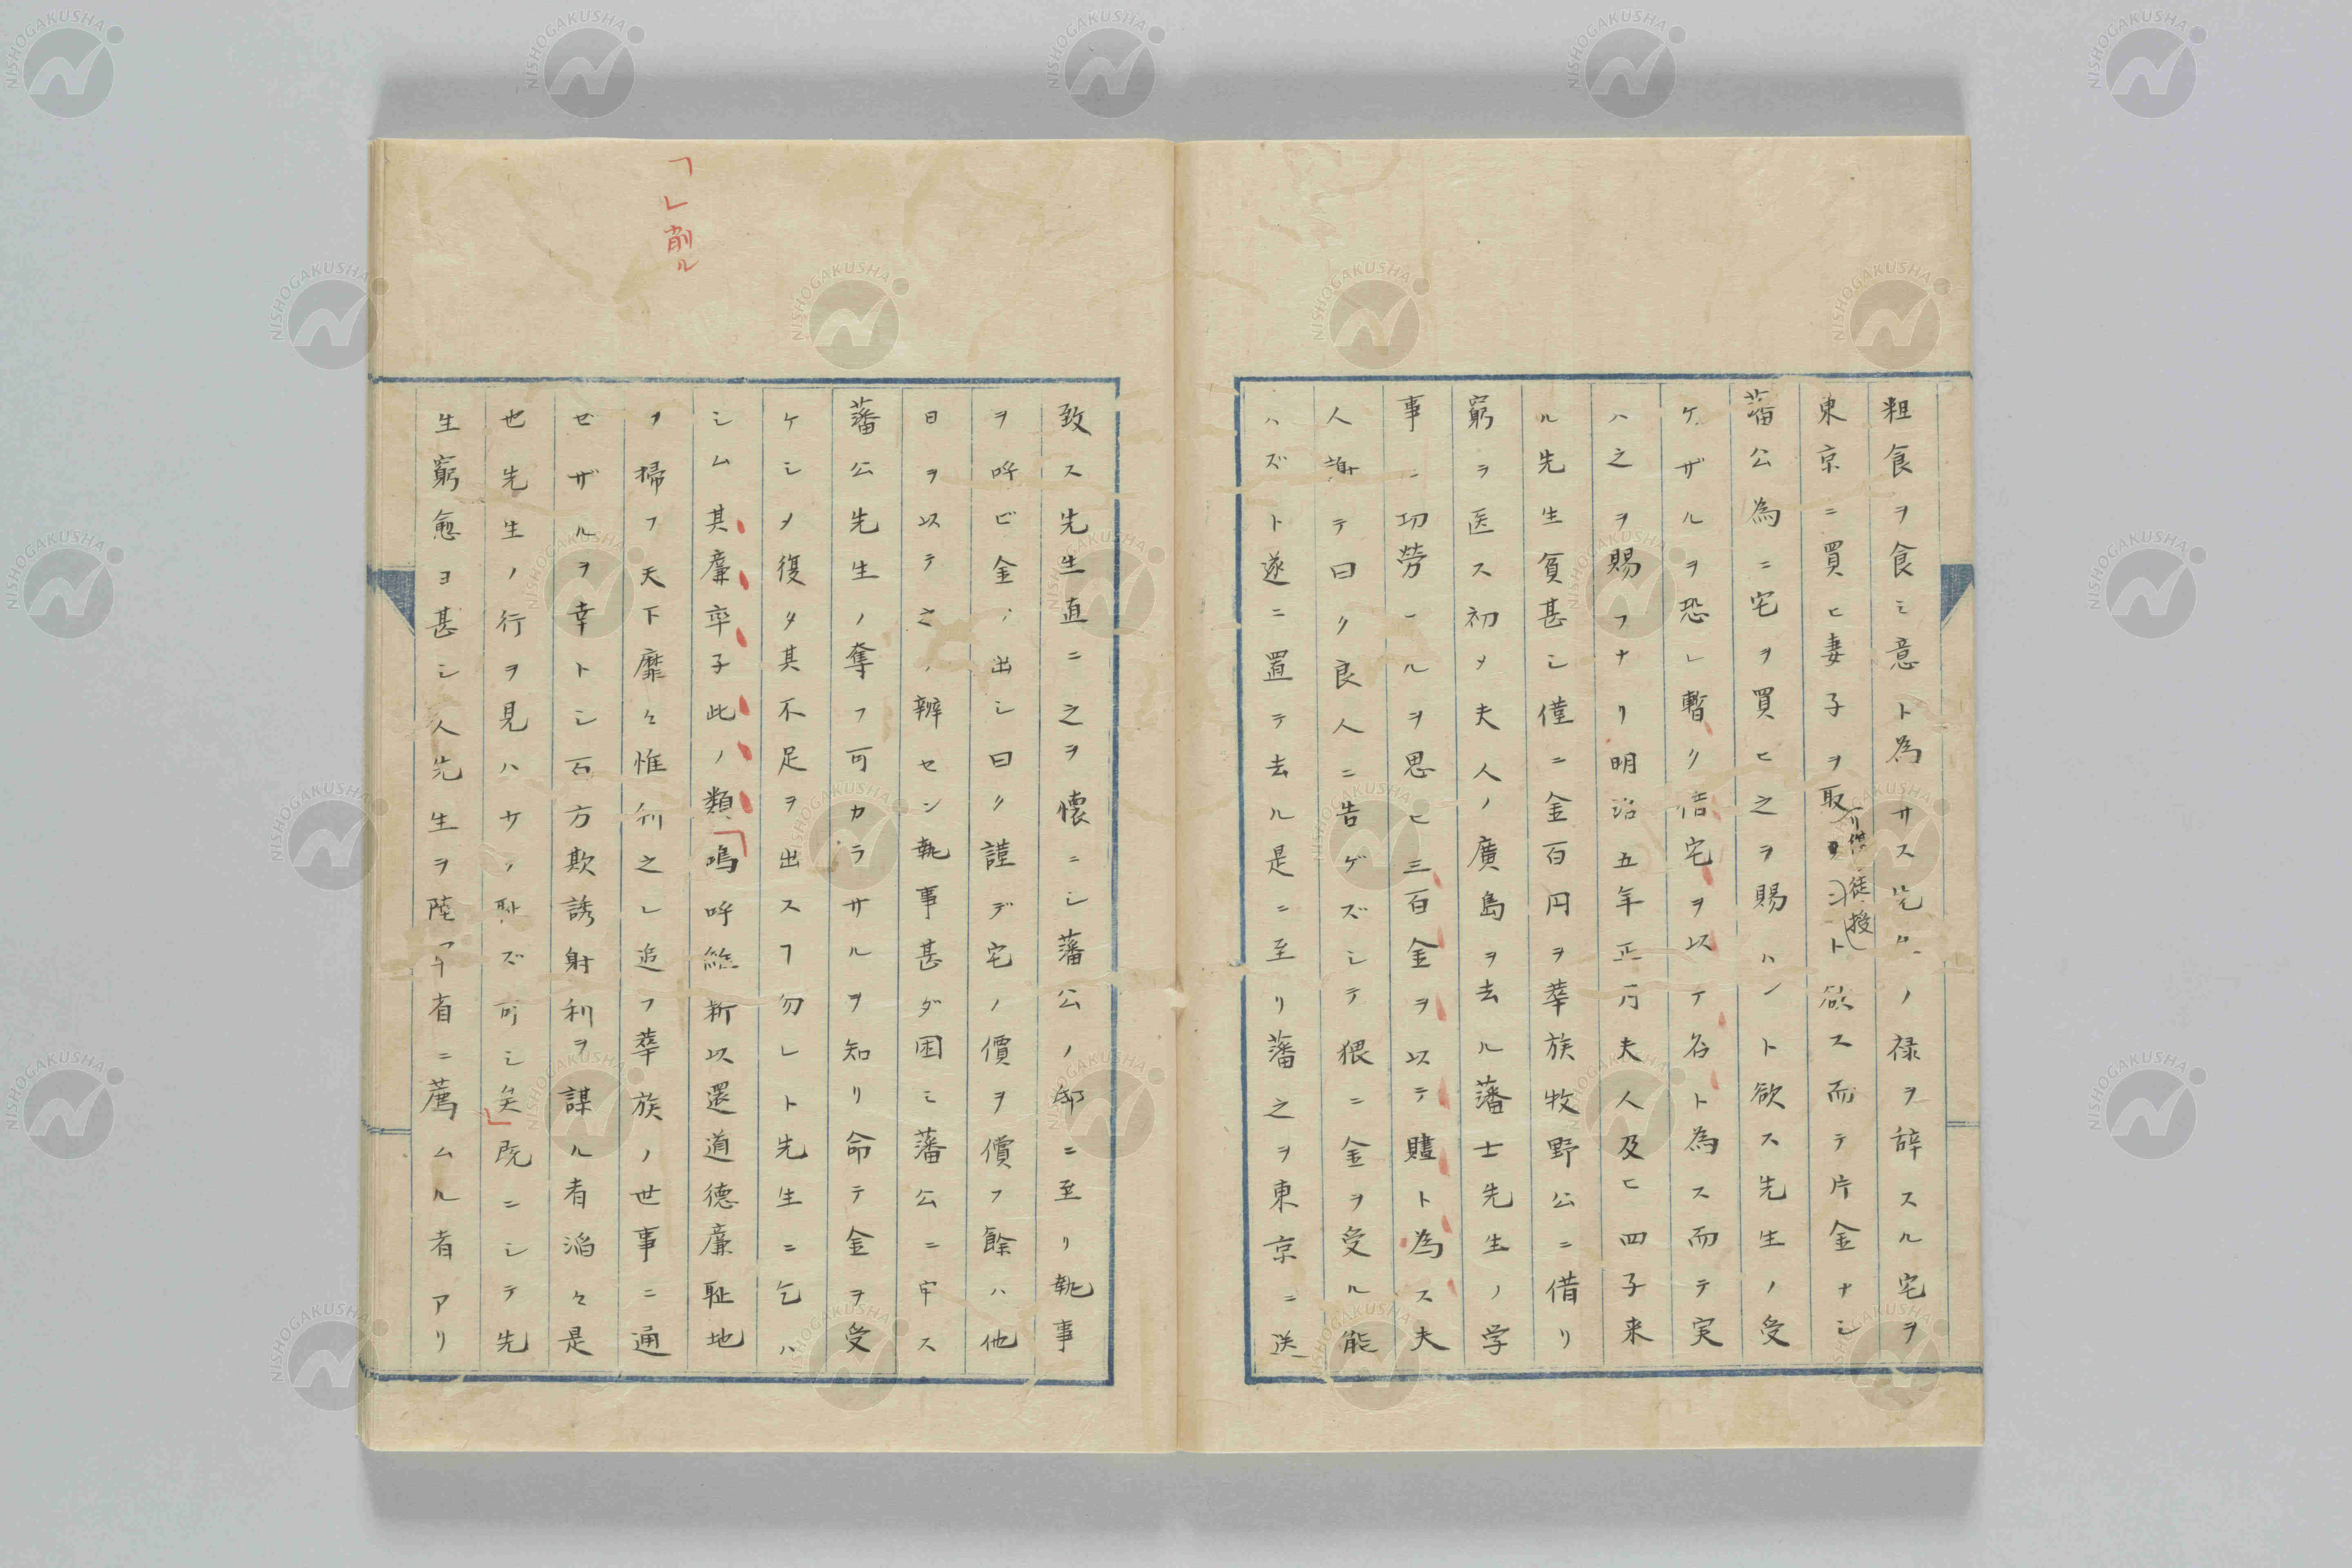 粗食ヲ食ミ意ト為サス先生ノ禄ヲ辞スル宅ヲ
東京ニ買ヒ妻子ヲ取リ徒ニ授ント欲ス而テ片金ナシ
藩公為ニ宅ヲ買ヒ之ヲ賜ハント欲ス先生ノ受
ケザルヲ恐レ暫ク借宅ヲ以テ名ト為ス而テ実
ハ之ヲ賜フナリ明治五年正月夫人及ヒ四子来
ル先生貧甚シ僅ニ金百円ヲ華族牧野公ニ借リ
窮ヲ医ス初メ夫人ノ廣島ヲ去ル藩士先生ノ学
事ニ功労ールヲ思ヒ三百金ヲ以テ贐ト為ス夫
人謝テ曰ク良人ニ告ゲズシテ猥ニ金ヲ受ル能
ハズト遂ニ置テ去ル是ニ至リ藩之ヲ東京ニ送
「」削ル
致ス先生直ニ之ヲ懐ニシ藩公ノ邸ニ至リ執事
ヲ呼ビ金ヲ出シ曰ク謹デ宅ノ價ヲ償フ餘ハ他
日ヲ以テ之ヲ辨セン執事甚ダ困ミ藩公ニ牢ス
藩公先生ノ奪フ可カラサルヲ知リ命テ金ヲ受
ケシメ復タ其不足ヲ出スフ勿レト先生ニ乞ハ
シム其廉率子此ノ類「嗚呼維新以還道徳廉恥地
ヲ掃フ天下靡々惟利之レ追フ華族ノ世事ニ通
ゼザルヲ幸トシ百方欺誘射利ヲ謀ル者滔々是
也先生ノ行ヲ見ハサヽ恥ズ可シ矣」既ニシテ先
生窮愈ヨ甚シ人先生ヲ陸軍省ニ薦ムル者アリ